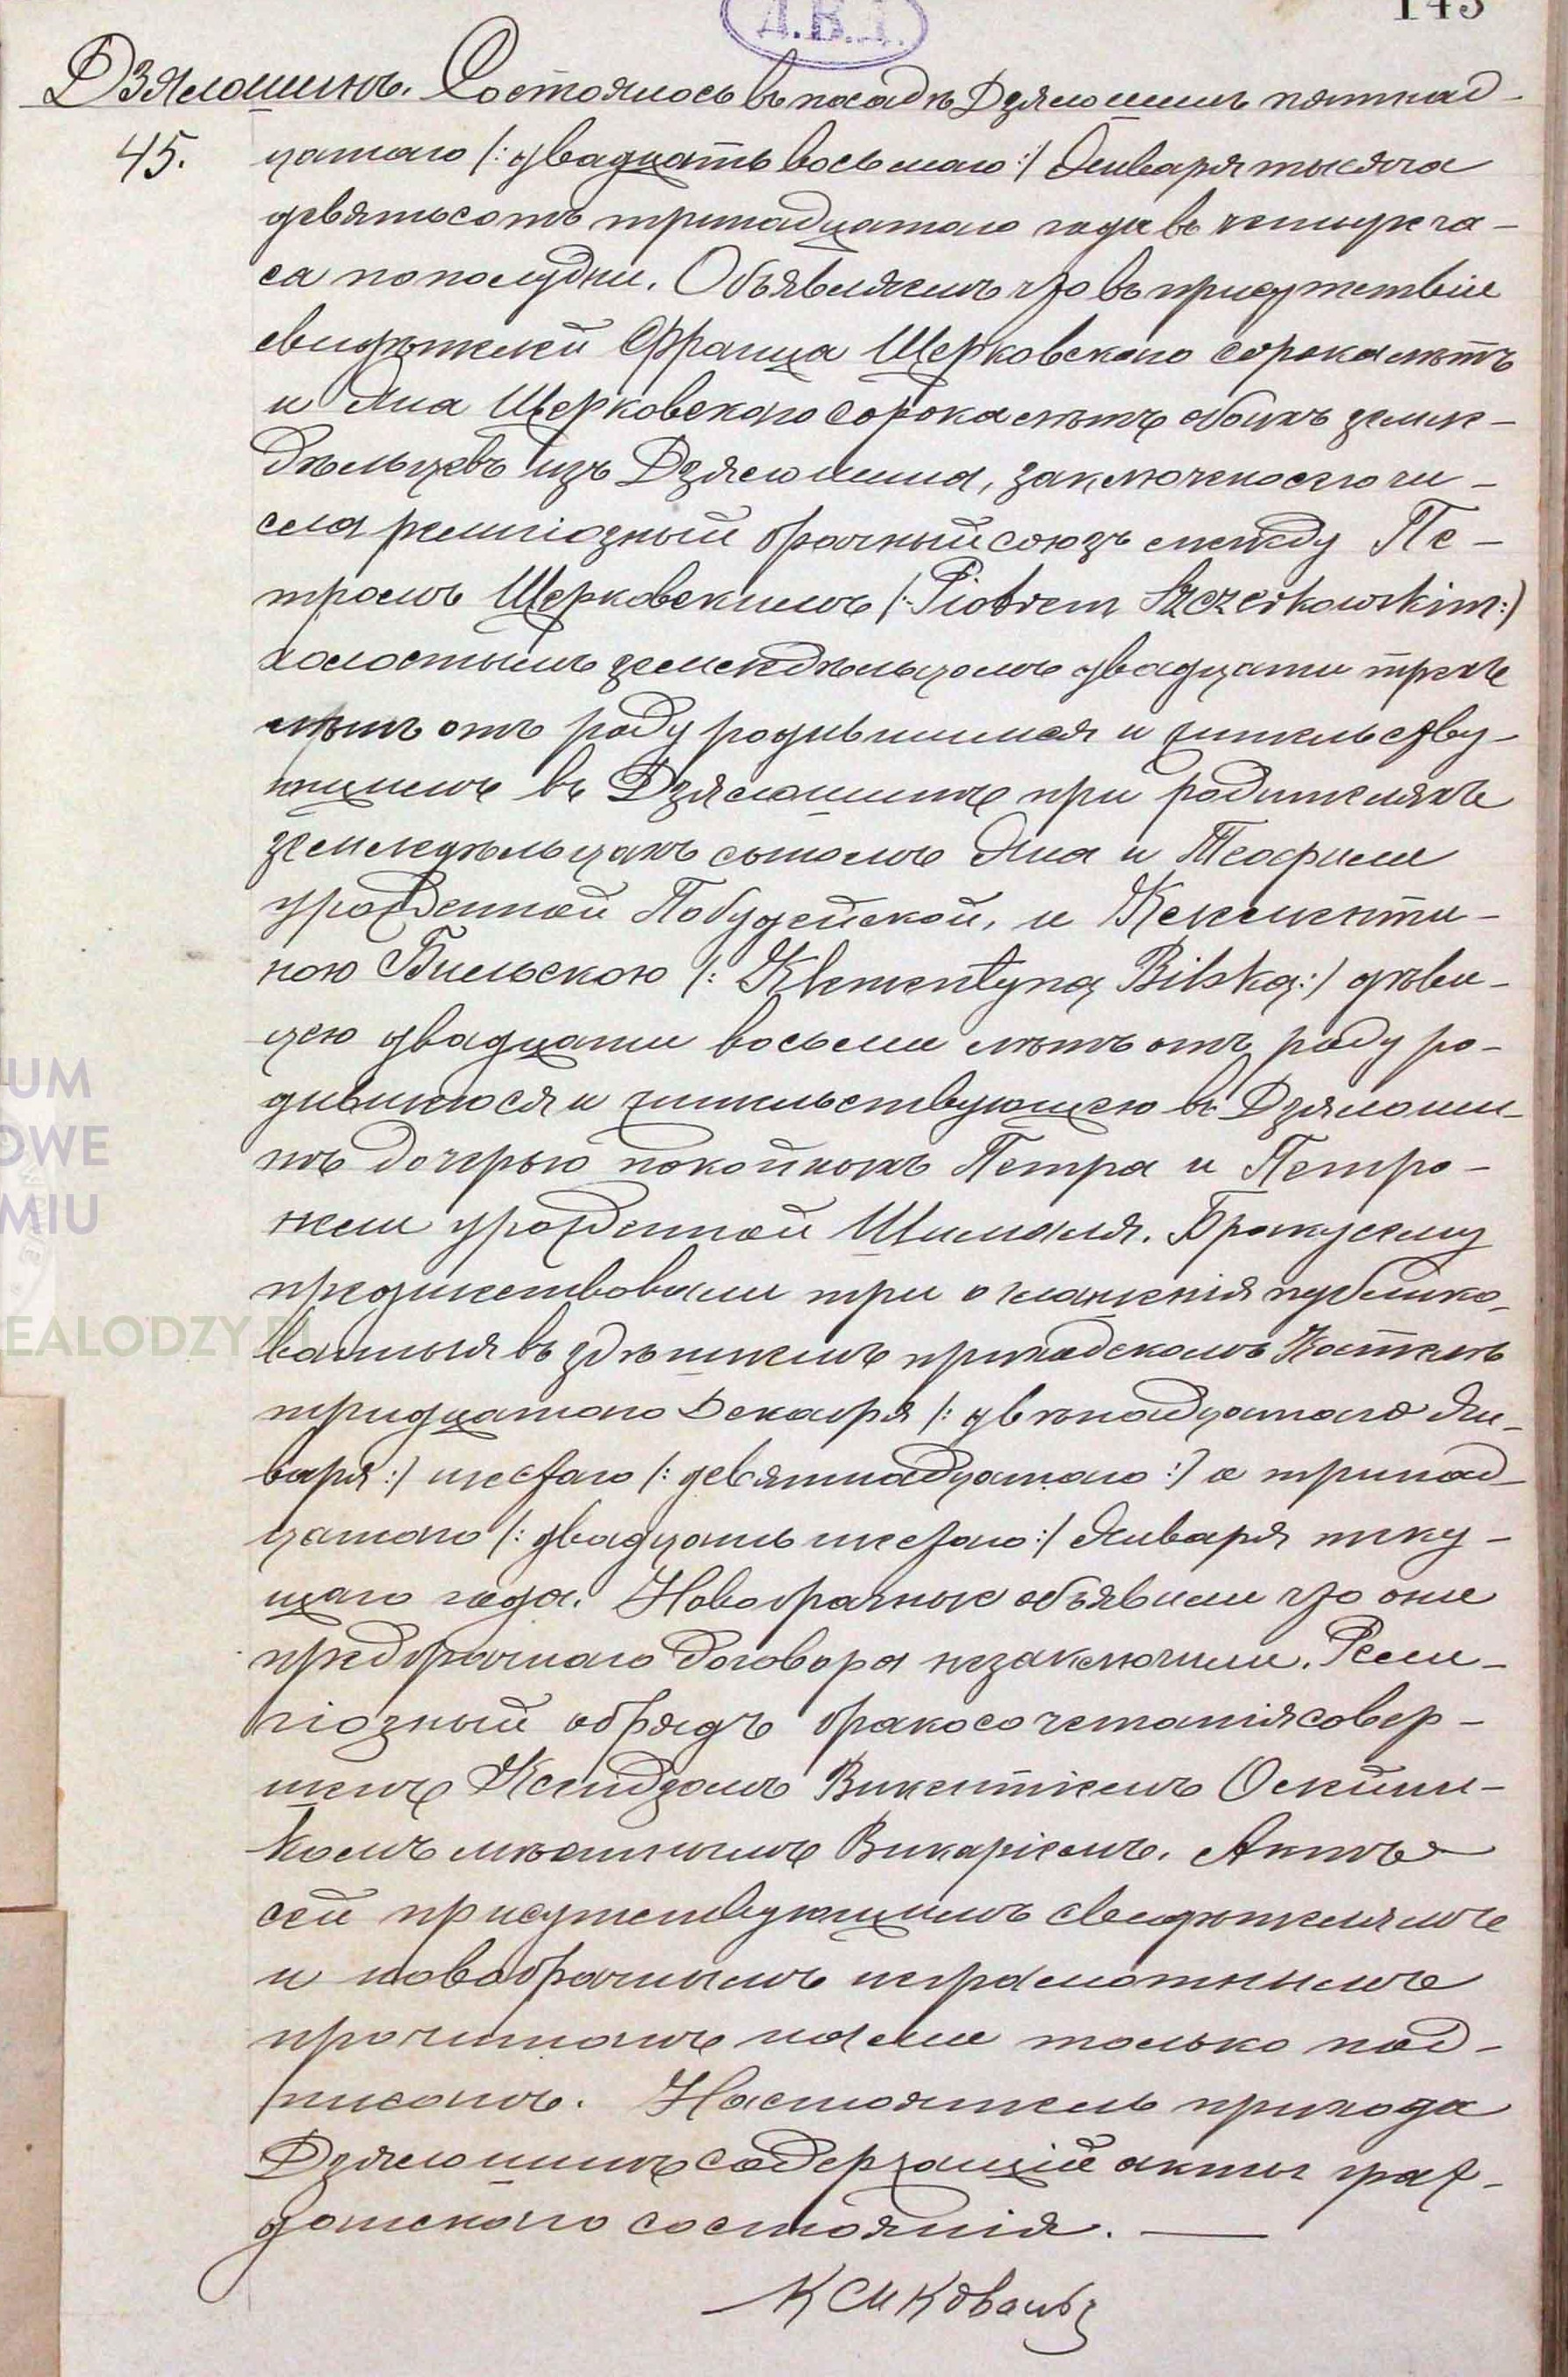 143
Д.В.Д.
Дзялошинъ. Состоялось въ посадѣ Дзялошинѣ пятнад-
45. цатаго /: двадцать восьмаго :/ Января тысяча
девятьсотъ тринадцатаго года въ четыре ча-
са пополудни. Объявляемъ что въ присутствіи
свидѣтелей Франца Щерковского сорока лѣтъ
и Яна Щерковского сорока лѣтъ обоихъ земле-
дѣльцевъ изъ Дзялошина, заключено сего чи-
сла религіозный брачный союзъ между Пе-
тромъ Щерковскимъ /: Piotrem Szczerkowskim :/
холостымъ земледѣльцомъ двадцати трехъ
лѣтъ отъ роду родившимся и жительству-
ющимъ въ Дзялошинѣ при родителяхъ
земледѣльцахъ сыномъ Яна и Теофили
урожденной Побудейской, и Клементи-
ною Бильскою /: Klementyną Bilską :/ дѣви-
цею двадцати восьми лѣтъ отъ роду ро-
дившеюся и жительствующею въ Дзялоши-
нѣ дочерью покойныхъ Петра и Петро-
нели урожденной Шималя. Браку сему
предшествовали три оглашенія публико-
ванныя въ здѣшнемъ приходскомъ Костелѣ
тридцатого Декабря /: двѣнадцатаго Ян-
варя :/ шестаго /: девятнадцатаго :/ а тринад-
цатаго /: двадцать шестаго :/ Января теку-
щаго года. Новобрачные объявили что они
предбрачнаго договора незаключили. Рели-
гіозный обрядъ бракосочетанія совер-
шенъ Ксендзомъ Викентіемъ
комъ мѣстнымъ Викаріемъ. Актъ
сей присутствующимъ свидѣтелямъ
и новобрачнымъ неграмотнымъ
прочитанъ нами только под-
писанъ. Настоятель прихода
Дзялошинъ содержащій акты граж-
данскаго состоянія.
UM
OWE
MIU
EALODZY.PL